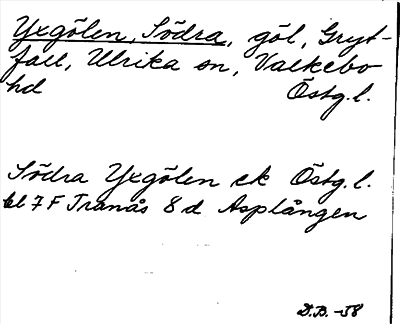 Yxgölen, Södra, göl, Gryt-
fall, Ulrika sn, Valkebo
hd Östg.l.
Södra Yxgölen ek Östg.l.
bl 7 F Tranås 8 d Asplången
D.B. -58